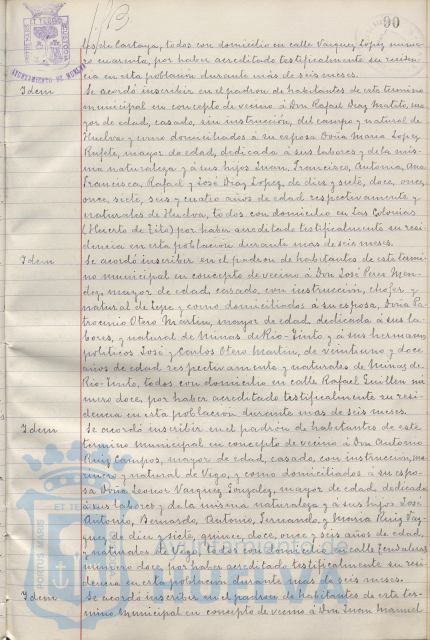 90
AYUNTAMIENTO DE HUELVA
de Cartaya, todos con domicilio en calle Vazquez Lopez, nume-
ro cuarenta, por haber acreditado testificalmente su residen-
cia en esta población durante más de seis meses.
Idem Se acordó inscribir en el padrón de habitantes de este termino
municipal en concepto de vecino á Don Rafael Diaz Mateo, ma-
yor de edad, casado, sin instrucción, del campo y natural de
Huelva y como domiciliados á su esposa Doña Maria Lopez
Rufete, mayor de edad, dedicada á sus labores y de la mis-
ma naturaleza y á sus hijos Juan, Francisco, Antonia, Ana
Francisca, Rafael y José Diaz Lopez, de diez y siete, doce, once,
once, siete, seis y cuatro años de edad respectivamente y
naturales de Huelva, todos con domicilio en Las Colonias
(Huerto de Tito) por haber acreditado testificalmente su resi-
dencia en esta población durante más de seis meses.
Idem Se acordó inscribir en el padrón de habitantes de este termi-
no municipal en concepto de vecino á Don José Perez Men-
dez, mayor de edad, casado, con instrucción, chofer y
natural de Lepe y como domiciliados á su esposa, Doña Pa-
trocinio Otero Martin, mayor de edad, dedicada á sus la-
bores, y natural de Minas de Rio-Tinto y á sus hermanos
politicos José y Carlos Otero Martin, de veintiuno y doce
años de edad respectivamente y naturales de Minas de
Rio-Tinto, todos con domicilio en calle Rafael Guillen nú
mero doce, por haber acreditado testificalmente su resi-
dencia en esta población durante más de seis meses.
Idem Se acordó inscribir en el padrón de habitantes de este
termino municipal en concepto de vecino á Don Antonio
Ruiz Campos, mayor de edad, casado, con instrucción, ma-
rinero y natural de Vigo, y como domiciliados á su espo-
sa Doña Leonor Vazquez Gonzalez, mayor de edad, dedicada
á sus labores y de la misma naturaleza y á sus hijos José
Antonio, Bernardo, Antonio, Fernando y Maria Ruiz Vaz-
quez, de diez y siete, quince, doce, once y seis años de edad,
y naturales de Vigo, todos con domicilio en calle Jerusalen
numero doce, por haber acreditado testificalmente su resi-
dencia en esta población durante más de seis meses.
Idem Se acordó inscribir en el padrón de habitantes de este ter-
mino municipal en concepto de vecino á Don Juan Manuel